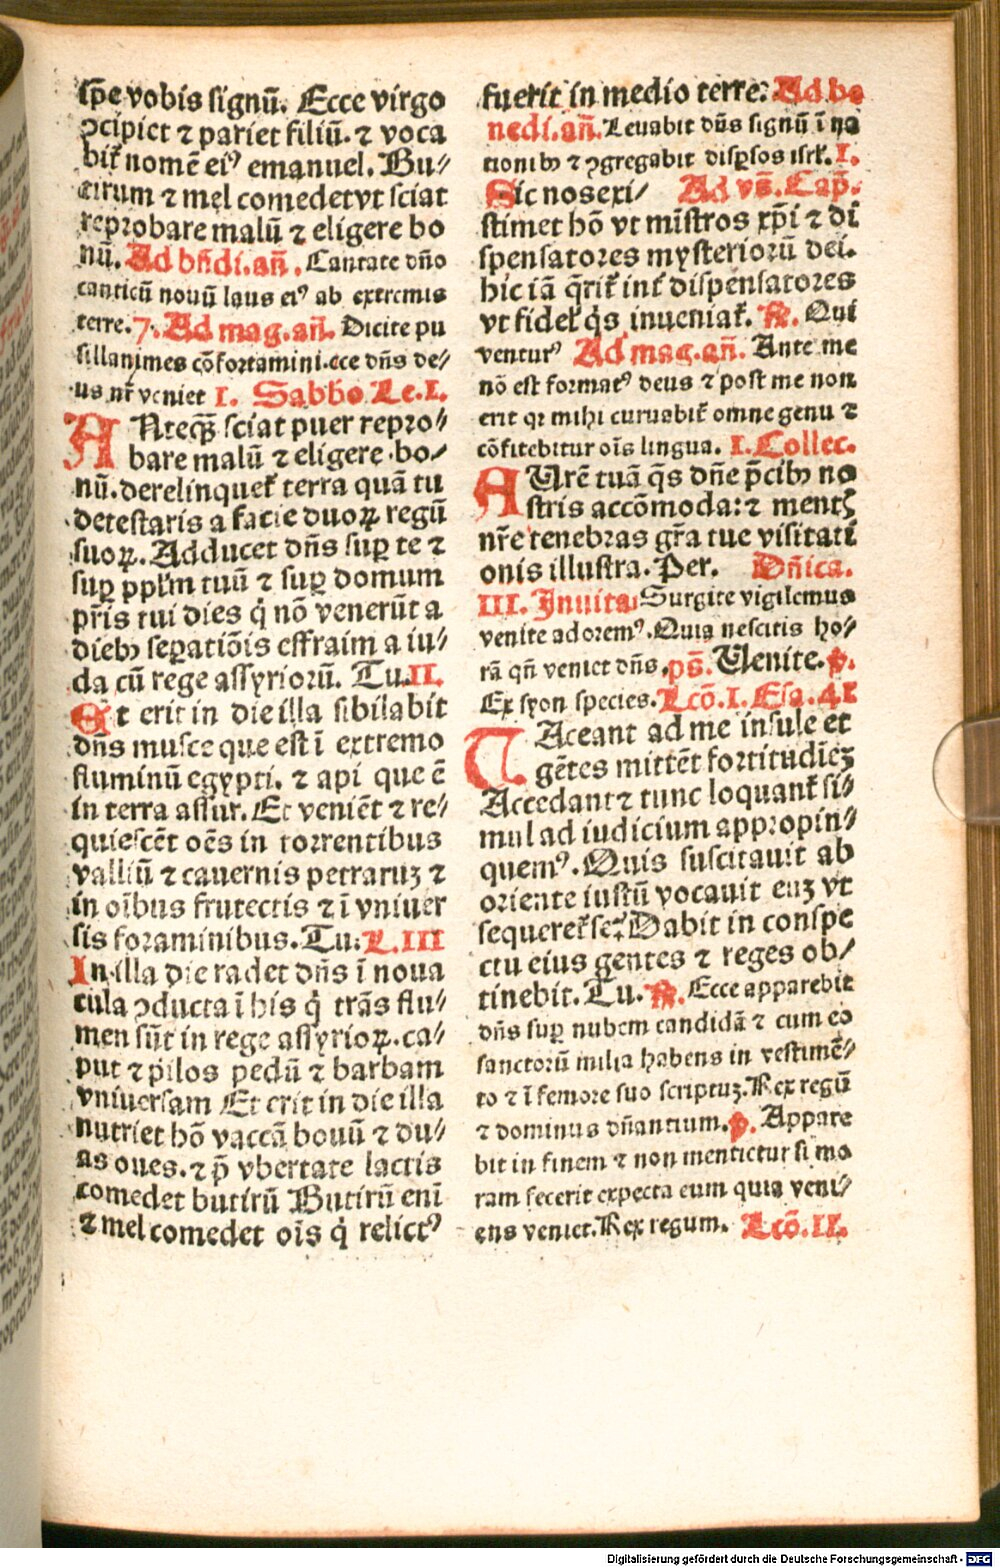 ip̄e vobis signū. Ecce virgo
ↄcipiet ⁊ pariet filiū. ⁊ voca
bit̃ nomē eiꝰ emanuel. Bu⸗
tirum ⁊ mel comedet vt sciat
reprobare malū ⁊ eligere bo
nū. Ad bñdi. añ. Cantate dño
canticū nouū laus eiꝰ ab extremis
terre. 7. Ad mag. añ. Dicite pu
sillanimes cōfortamini. ecce dñs de⸗
us nr̄ veniet I. Sabbo Le. I.
ANteq̃ꝫ sciat puer repro⸗
bare malū ⁊ eligere bo⸗
nū. derelinquet̃ terra quā tu
detestaris a facie duoꝝ regū
suoꝝ. Adducet dñs suꝑ te ⁊
suꝑ pplm̄ tuū ⁊ suꝑ domum
pr̄is tui dies q̇ nō venerūt a
diebꝫ seꝑatiōis effraim a iu⸗
da cū rege assyriorū. Tu. II.
Et erit in die illa sibilabit
dñs musce que est ī extremo
fluminū egypti. ⁊ api que ē
in terra assur. Et veniēt ⁊ re⸗
quiescēt oēs in torrentibus
valliū ⁊ cauernis petraruꝫ ⁊
in oībus frutectis ⁊ ī vniuer
sis foraminibus. Tu. L. III
In illa die radet dñs ī noua
cula ↄducta ī his q̇ trās flu⸗
men sūt in rege assyrioꝝ. ca⸗
put ⁊ pilos pedū ⁊ barbam
vniuersam Et erit in die illa
nutriet hō vaccā bouū ⁊ du⸗
as oues. ⁊ p̄ vbertate lactis
comedet butirū Butirū enī
⁊ mel comedet oīs q̇ relictꝰ
fuerit in medio terre. Ad be
nedi. añ. Leuabit dñs signū ī na
tionibꝫ ⁊ ↄgregabit disꝑsos isrl̄. I.
Sic nos exi⸗ Ad vs̄. Cap̄.
stimet hō vt mīstros xp̄i ⁊ di
spensatores mysteriorū dei.
hic iā q̄rit̃ int̃ dispensatores
vt fidel̃ q̇s inueniat̃. R̃. Qui
venturꝰ Ad mag. añ. Ante me
nō est formatꝰ deus ⁊ post me non
erit qꝛ mihi curuabit̃ omne genu ⁊
cōfitebitur oīs lingua. I. Collec.
AUrē tuā q̄s dñe p̄cibꝫ no
stris accōmoda: ⁊ mentꝭ
nr̄e tenebras gr̄a tue visitati
onis illustra. Per. Dñica.
III. Inuita. Surgite vigilemus
venite adoremꝰ. Quia nescitis ho⸗
rā qñ veniet dñs. ps̄. Uenite. ꝟ.
Ex syon species. Lcō. I. Esa. 41
TAceant ad me insule et
gētes mittēt fortitudīeꝫ
Accedant ⁊ tunc loquant̃ si⸗
mul ad iudicium appropin⸗
quemꝰ. Quis suscitauit ab
oriente iustū vocauit euꝫ vt
sequeret̃ se: Dabit in conspe
ctu eius gentes ⁊ reges ob⸗
tinebit. Tu. R̃. Ecce apparebit
dñs suꝑ nubem candidā ⁊ cum eo
sanctorū milia habens in vestimē⸗
to ⁊ ī femore suo scriptuꝫ. Rex regū
⁊ dominus dñantium. ꝟ. Appare
bit in finem ⁊ non mentietur si mo
ram fecerit expecta eum quia veni⸗
ens veniet. Rex regum. Lcō. II.
Digitalisierung gefördert durch die Deutsche Forschungsgemeinschaft - DFG